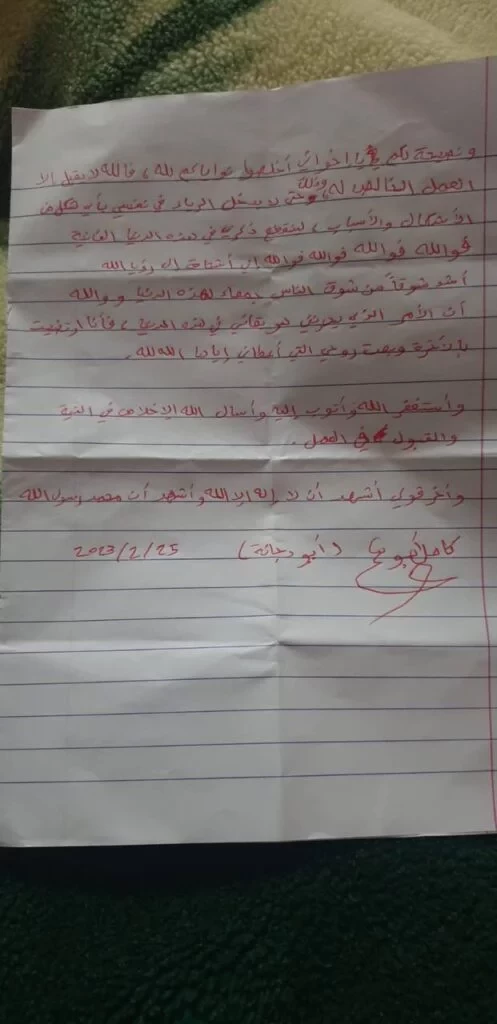 ونصيحة لكم يا إخواني أخلصوا نواياكم لله، فالله لا يقبل إلا
العمل الخالص له، وذلك حتى لا يدخل الرياء في نفسي بأي شكل من
الأشكال والأسباب، لينقطع ذكري في هذه الدنيا الفانية
فوالله فوالله فوالله فوالله إني أشتاق إلى رؤيا الله
أشد شوقاً من شوق الناس جمعاء لهذه الدنيا ووالله
أن الأمر الذي يحزنني هو بقائي في هذه الدنيا، فأنا ارتضيت
بالآخرة وبعت روحي التي أعطاني إياها الله لله.
وأستغفر الله وأتوب إليه وأسأل الله الإخلاص في النية
والقبول في العمل.
وأخر قولي أشهد أن لا إله إلا الله وأشهد أن محمد رسول الله
(أبو دجانة) 2023/2/25